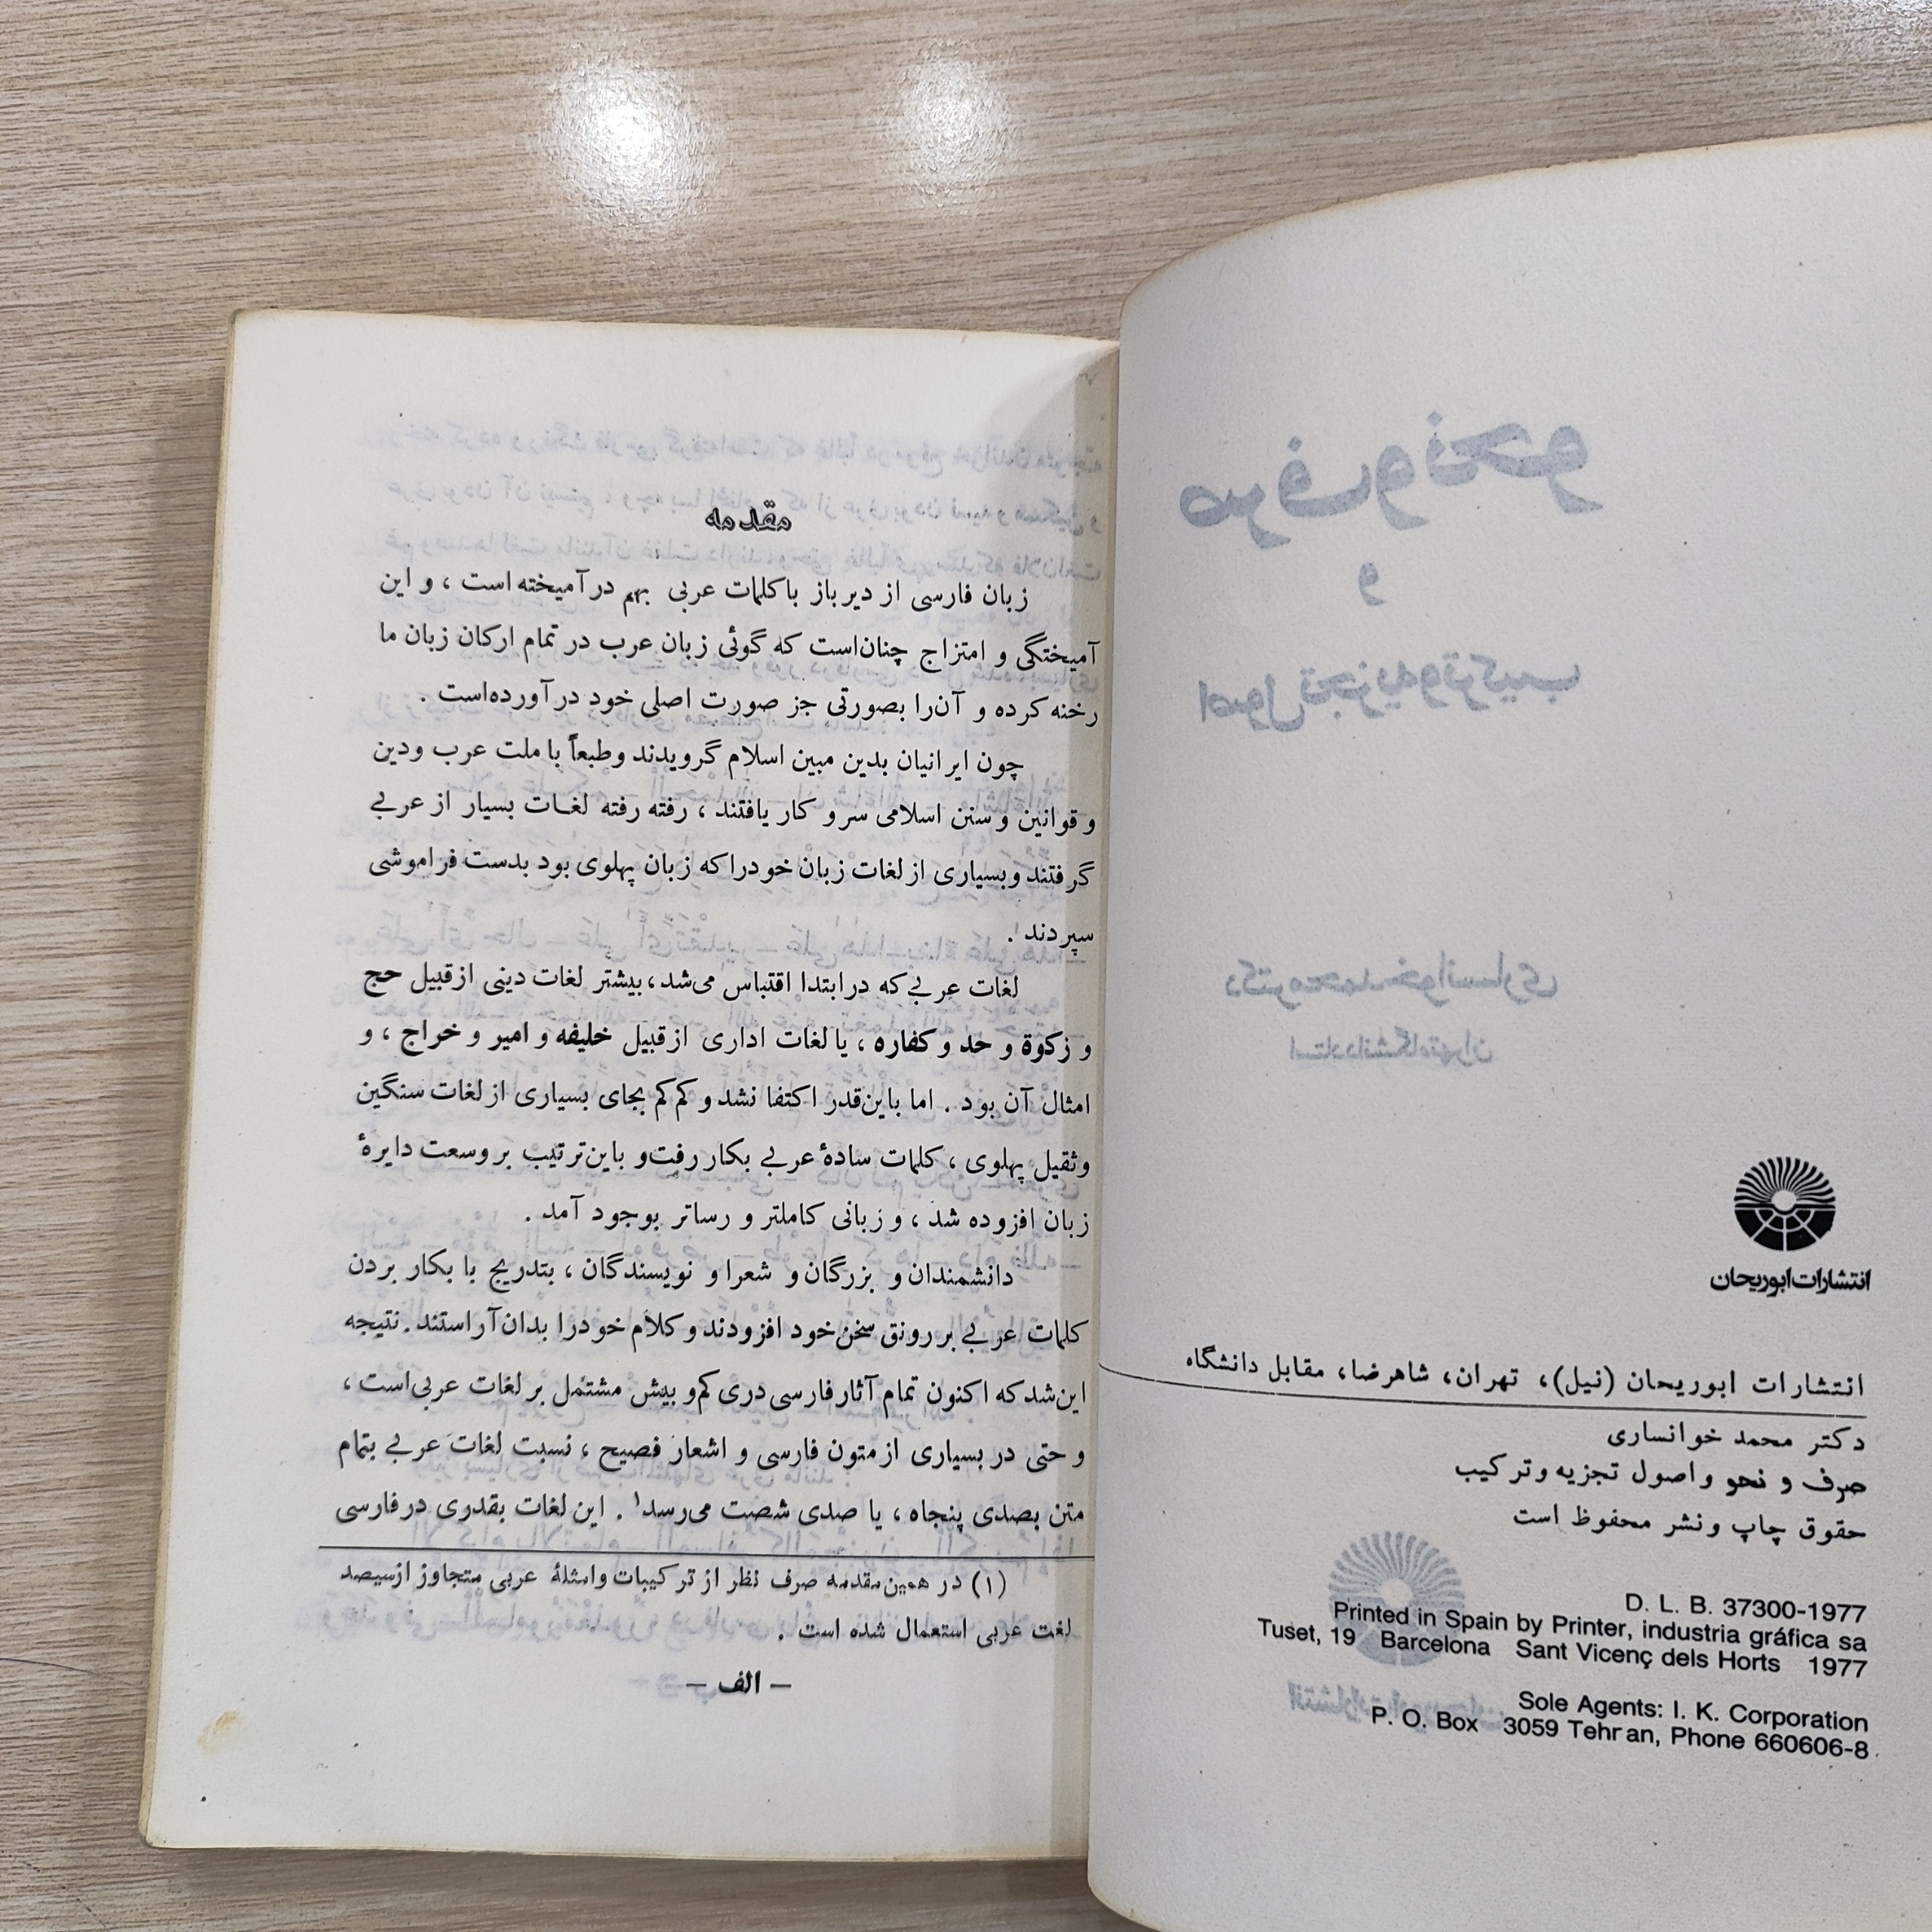 انتشارات ابوریحان
انتشارات ابوریحان (نیل)، تهران، شاهرضا، مقابل دانشگاه
دکتر محمد خوانساری
صرف و نحو و اصول تجزیه و ترکیب
حقوق چاپ و نشر محفوظ است
D. L. B. 37300-1977
Printed in Spain by Printer, industria gráfica sa
Tuset, 19 Barcelona Sant Vicenç dels Horts 1977
Sole Agents: I. K. Corporation
P. O. Box 3059 Tehran, Phone 660606-8
مقدمه
زبان فارسی از دیر باز با کلمات عربی بهم درآمیخته است ، و این
آمیختگی و امتزاج چنان‌است که گوئی زبان عرب در تمام ارکان زبان ما
رخنه کرده و آن‌را بصورتی جز صورت اصلی خود درآورده‌است .
چون ایرانیان بدین مبین اسلام گرویدند و طبعاً با ملت عرب و دین
و قوانین و سنن اسلامی سر و کار یافتند ، رفته رفته لغات بسیار از عربی
گرفتند و بسیاری از لغات زبان خود را که زبان پهلوی بود بدست فراموشی
سپردند ۱.
لغات عربی که در ابتدا اقتباس می‌شد، بیشتر لغات دینی از قبیل حج
و زکوة و حد و کفاره ، یا لغات اداری از قبیل خلیفه و امیر و خراج ، و
امثال آن بود . اما باین‌قدر اکتفا نشد و کم کم بجای بسیاری از لغات سنگین
و ثقیل پهلوی ، کلمات سادهٔ عربی بکار رفت و باین‌ترتیب بر وسعت دایرهٔ
زبان افزوده شد ، و زبانی کاملتر و رساتر بوجود آمد .
دانشمندان و بزرگان و شعرا و نویسندگان ، بتدریج با بکار بردن
کلمات عربی بر رونق سخن خود افزودند و کلام خود را بدان آراستند . نتیجه
این‌شد که اکنون تمام آثار فارسی دری کم و بیش مشتمل بر لغات عربی‌است ،
و حتی در بسیاری از متون فارسی و اشعار فصیح ، نسبت لغات عربی بتمام
متن بصدی پنجاه ، یا صدی شصت می‌رسد۱ . این لغات بقدری در فارسی
(۱) در همین‌مقدمه صرف نظر از ترکیبات و امثلهٔ عربی متجاوز از سیصد
لغت عربی استعمال شده است .
– الف –